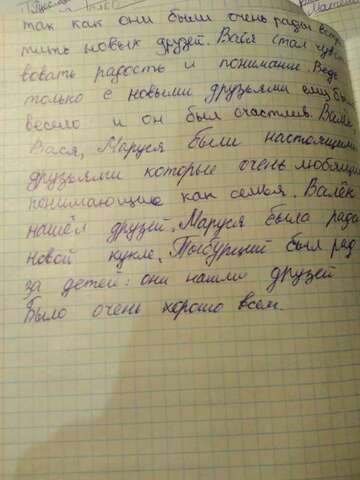 так как они были очень рады встре
тить новых друзей. Вася стал чувст
вовать радость и понимание. Ведь
только с новыми друзьями ему было
весело и он был счастлив. Валек
Вася, Маруся были настоящими
друзьями которые очень любящи
понимающие как семья. Валёк
нашёл друзей, Маруся была рада
новой кукле, Тыбурций был рад
за детей: они нашли друзей
Было очень хорошо всем.